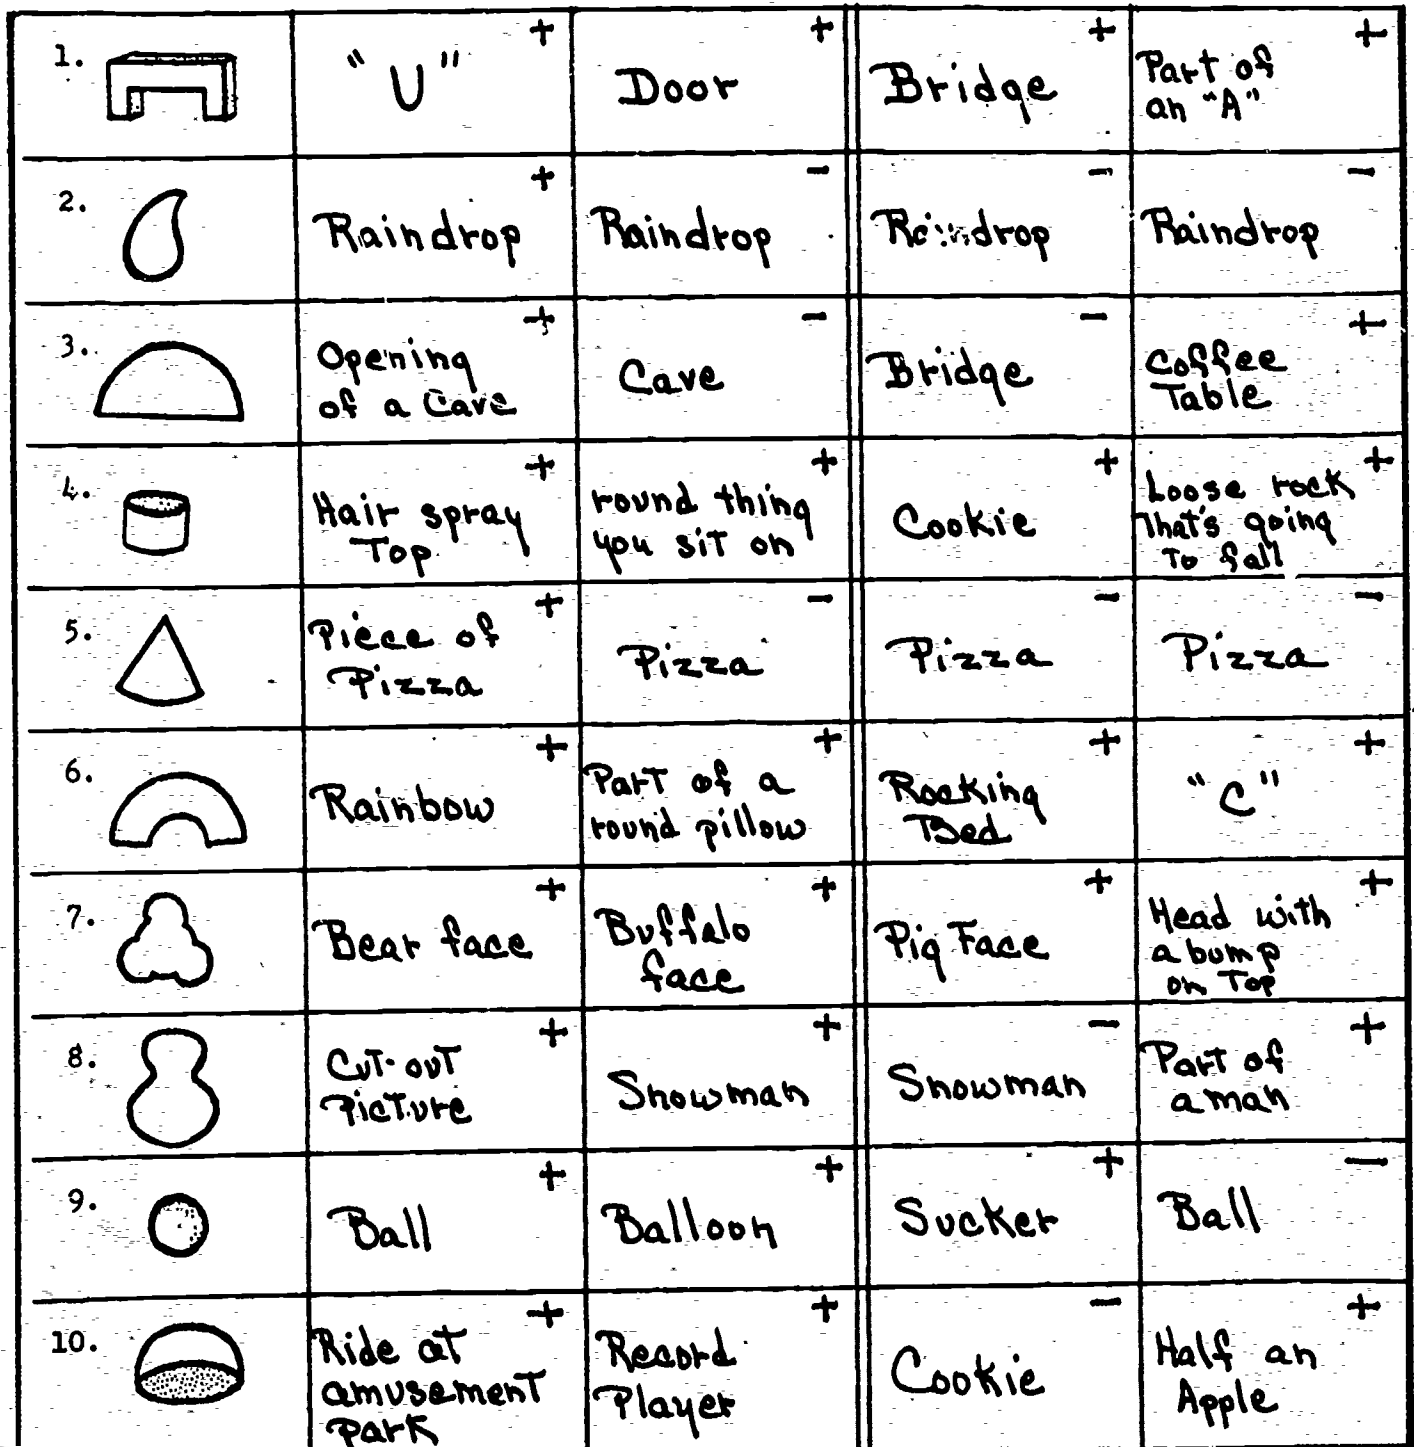 1.
+
"U"
+
Door
+
Bridge
+
Part of
an "A"
2.
+
Raindrop
-
Raindrop
-
Raindrop
-
Raindrop
3.
+
Opening
of a Cave
-
Cave
-
Bridge
+
Coffee
Table
4.
+
Hair spray
Top
+
round thing
you sit on
+
Cookie
+
Loose rock
That's going
To fall
5.
+
Piece of
Pizza
-
Pizza
-
Pizza
-
Pizza
6.
+
Rainbow
+
Part of a
round pillow
+
Rocking
Bed
+
"C"
7.
+
Bear face
+
Buffalo
face
+
Pig Face
+
Head with
a bump
on Top
8.
+
Cut-out
Picture
+
Snowman
-
Snowman
+
Part of
a man
9.
+
Ball
+
Balloon
+
Sucker
-
Ball
10.
+
Ride at
amusement
park
+
Record
Player
-
Cookie
+
Half an
Apple